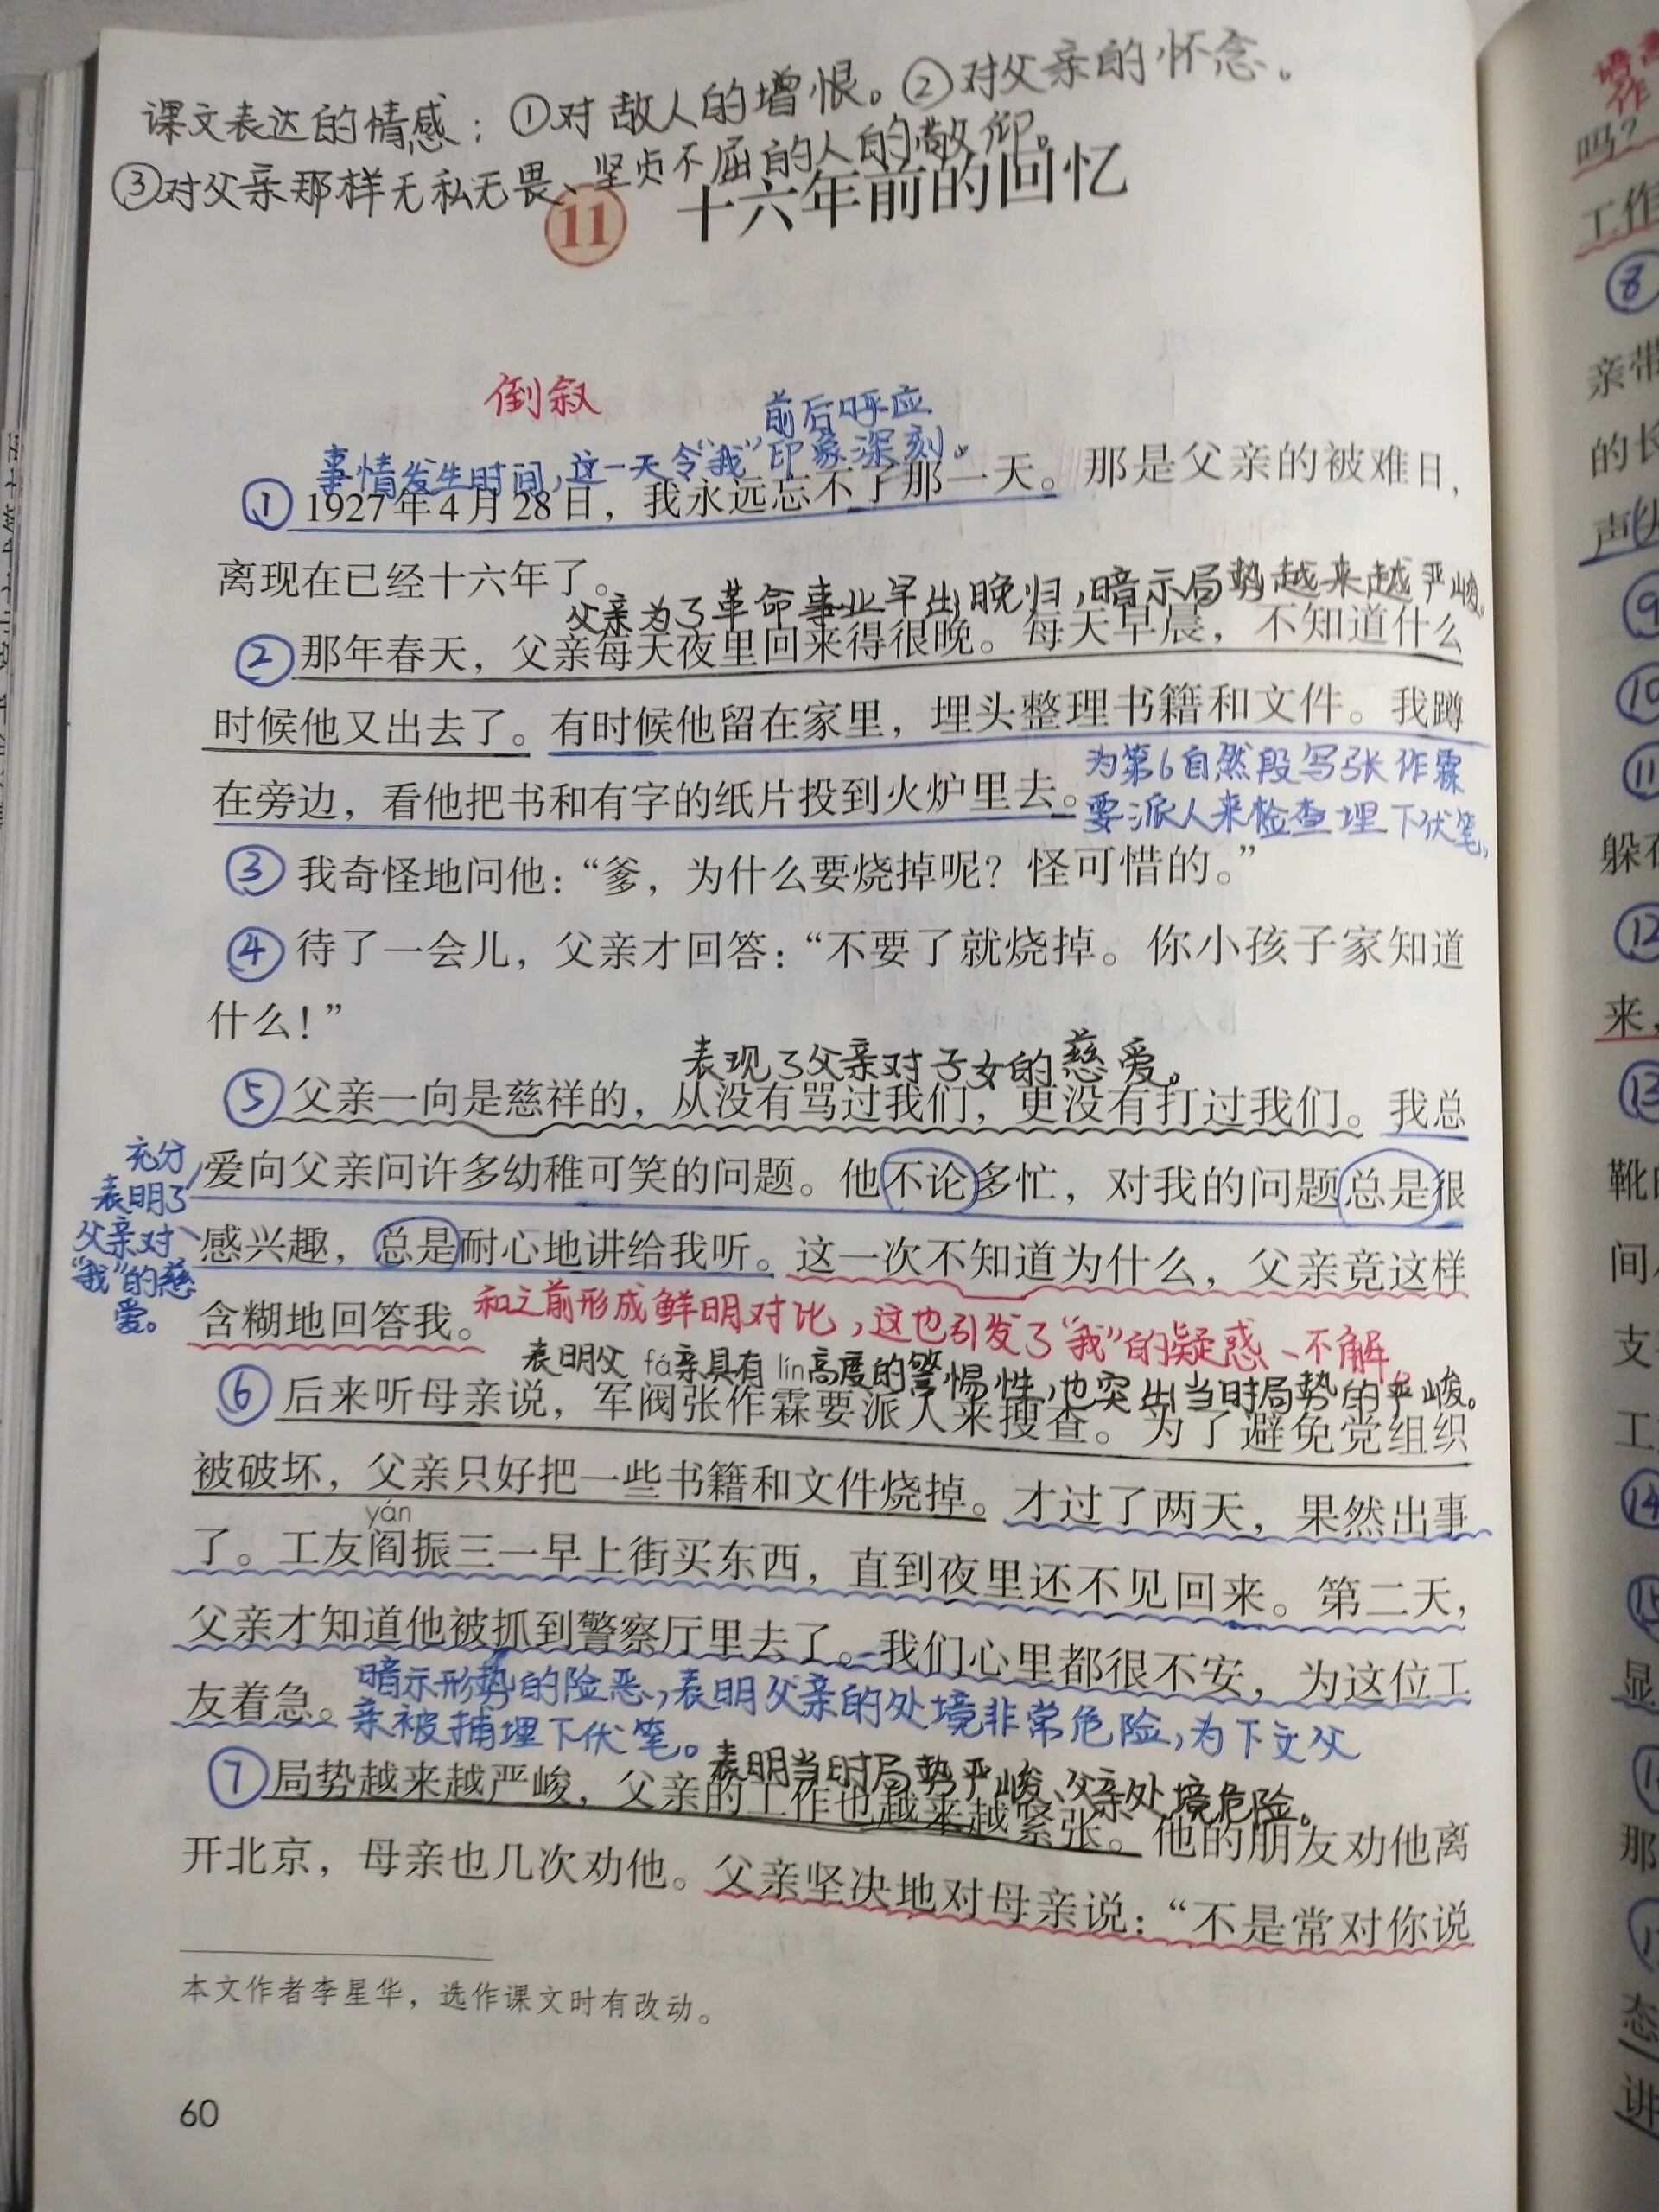 课文表达的情感：①对敌人的增恨。②对父亲的怀念。
③对父亲那样无私无畏、坚贞不屈的人的敬仰。
11 十六年前的回忆
倒叙
前后呼应
事情发生时间，这一天令“我”印象深刻。
①1927年4月28日，我永远忘不了那一天。那是父亲的被难日，
离现在已经十六年了。
父亲为了革命事业早出晚归，暗示局势越来越严峻。
②那年春天，父亲每天夜里回来得很晚。每天早晨，不知道什么
时候他又出去了。有时候他留在家里，埋头整理书籍和文件。我蹲
在旁边，看他把书和有字的纸片投到火炉里去。
为第6自然段写张作霖
要派人来检查埋下伏笔。
③我奇怪地问他：“爹，为什么要烧掉呢？怪可惜的。”
④待了一会儿，父亲才回答：“不要了就烧掉。你小孩子家知道
什么！”
表现了父亲对子女的慈爱。
⑤父亲一向是慈祥的，从没有骂过我们，更没有打过我们。我总
爱向父亲问许多幼稚可笑的问题。他不论多忙，对我的问题总是很
感兴趣，总是耐心地讲给我听。这一次不知道为什么，父亲竟这样
含糊地回答我。
充分
表明了
父亲对
“我”的慈
爱。
和之前形成鲜明对比，这也引发了“我”的疑惑、不解。
表明父亲具有高度的警惕性，也突出当时局势的严峻。
fá lín
⑥后来听母亲说，军阀张作霖要派人来搜查。为了避免党组织
被破坏，父亲只好把一些书籍和文件烧掉。才过了两天，果然出事
yán
了。工友阎振三一早上街买东西，直到夜里还不见回来。第二天，
父亲才知道他被抓到警察厅里去了。我们心里都很不安，为这位工
友着急。
暗示形势的险恶，表明父亲的处境非常危险，为下文父
亲被捕埋下伏笔。
表明当时局势严峻、父亲处境危险。
⑦局势越来越严峻，父亲的工作也越来越紧张。他的朋友劝他离
开北京，母亲也几次劝他。父亲坚决地对母亲说：“不是常对你说
本文作者李星华，选作课文时有改动。
60
吗？
工作
⑧
亲带
的长
⑨
⑩
⑪
躲在
⑫
来，
⑬
间
支
工
⑭
⑮
显
那
态
讲